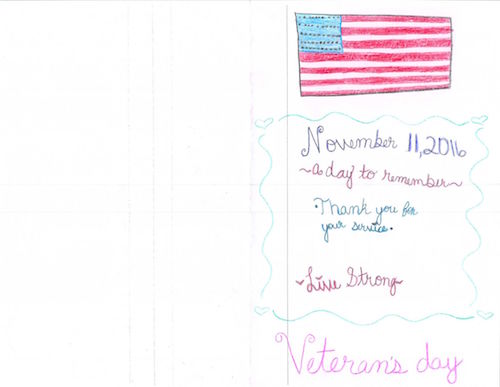 November 11, 2016
~a day to remember~
·Thank you for
your service.
~Live Strong~
Veteran's day